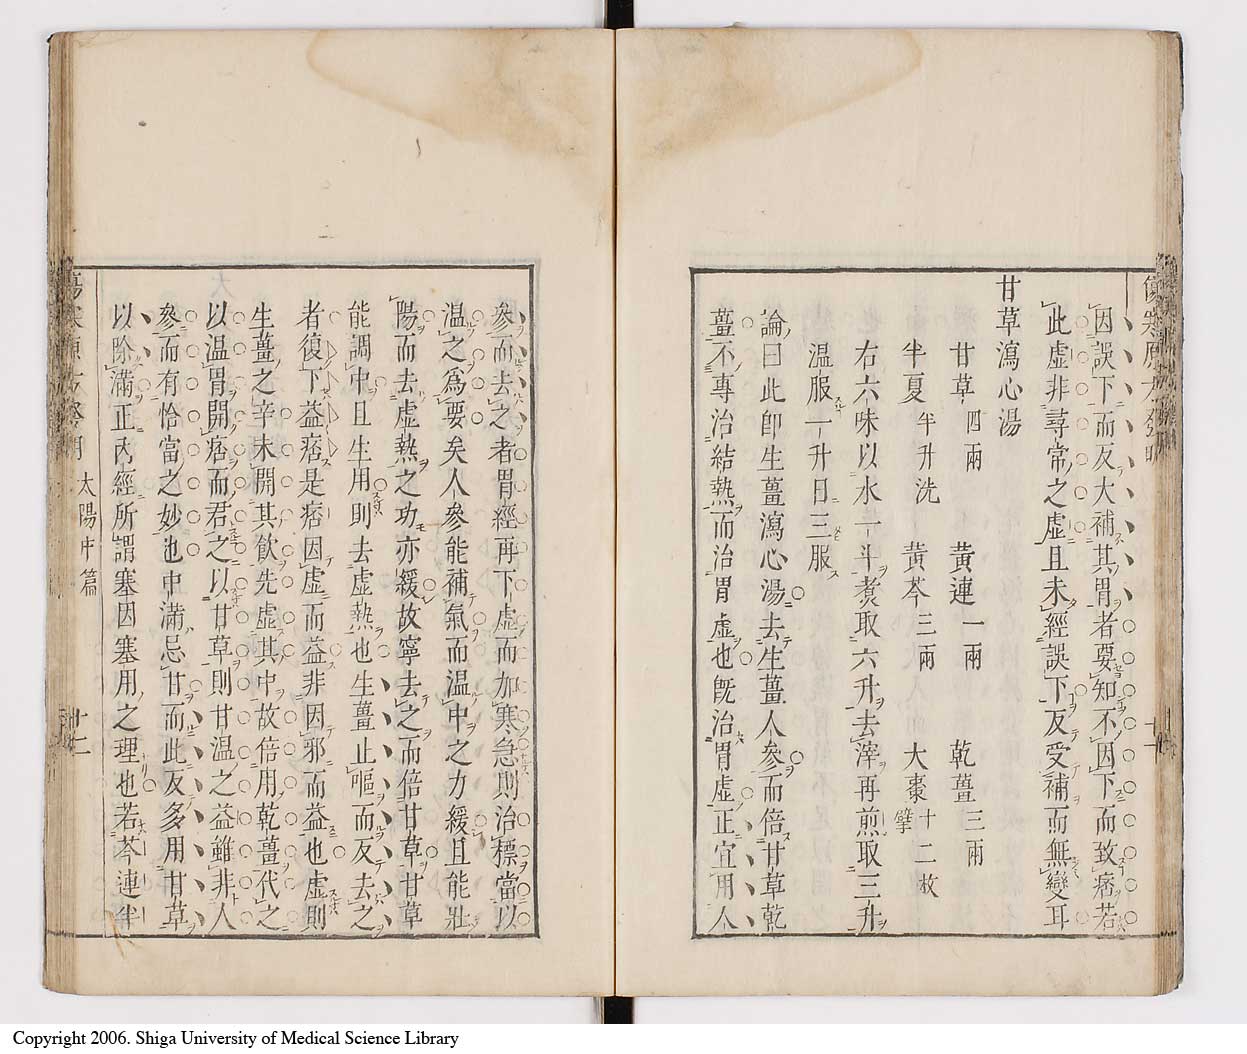 因誤下而反大補其胃者要知不因下而致痞若
此虛非尋常之虛且未經誤下反受補而無變耳
甘草瀉心湯
甘草四兩 黃連一兩 乾薑三兩
半夏半升洗 黃芩三兩 大棗十二枚擘
右六味以水一斗煑取六升去滓再煎取三升
温服一升日三服
論曰此卽生薑瀉心湯去生薑人參而倍甘草乾
薑不專治結熱而治胃虛也旣治胃虛正宜用人
參而去之者胃經再下虛而加寒急則治標當以
温之爲要矣人參能補氣而温中之力緩且能壯
陽而去虛熱之功亦緩故寧去之而倍甘草甘草
能調中且生用則去虛熱也生薑止嘔而反去之
者復下益痞是痞因虛而益非因邪而益也虛則
生薑之辛未開其飮先虛其中故倍用乾薑代之
以温胃開痞而君之以甘草則甘温之益雖非人
參而有恰當之妙也中滿忌甘而此反多用甘草
以除滿正內經所謂塞因塞用之理也若芩連半
太陽中篇
Copyright 2006. Shiga University of Medical Science Library